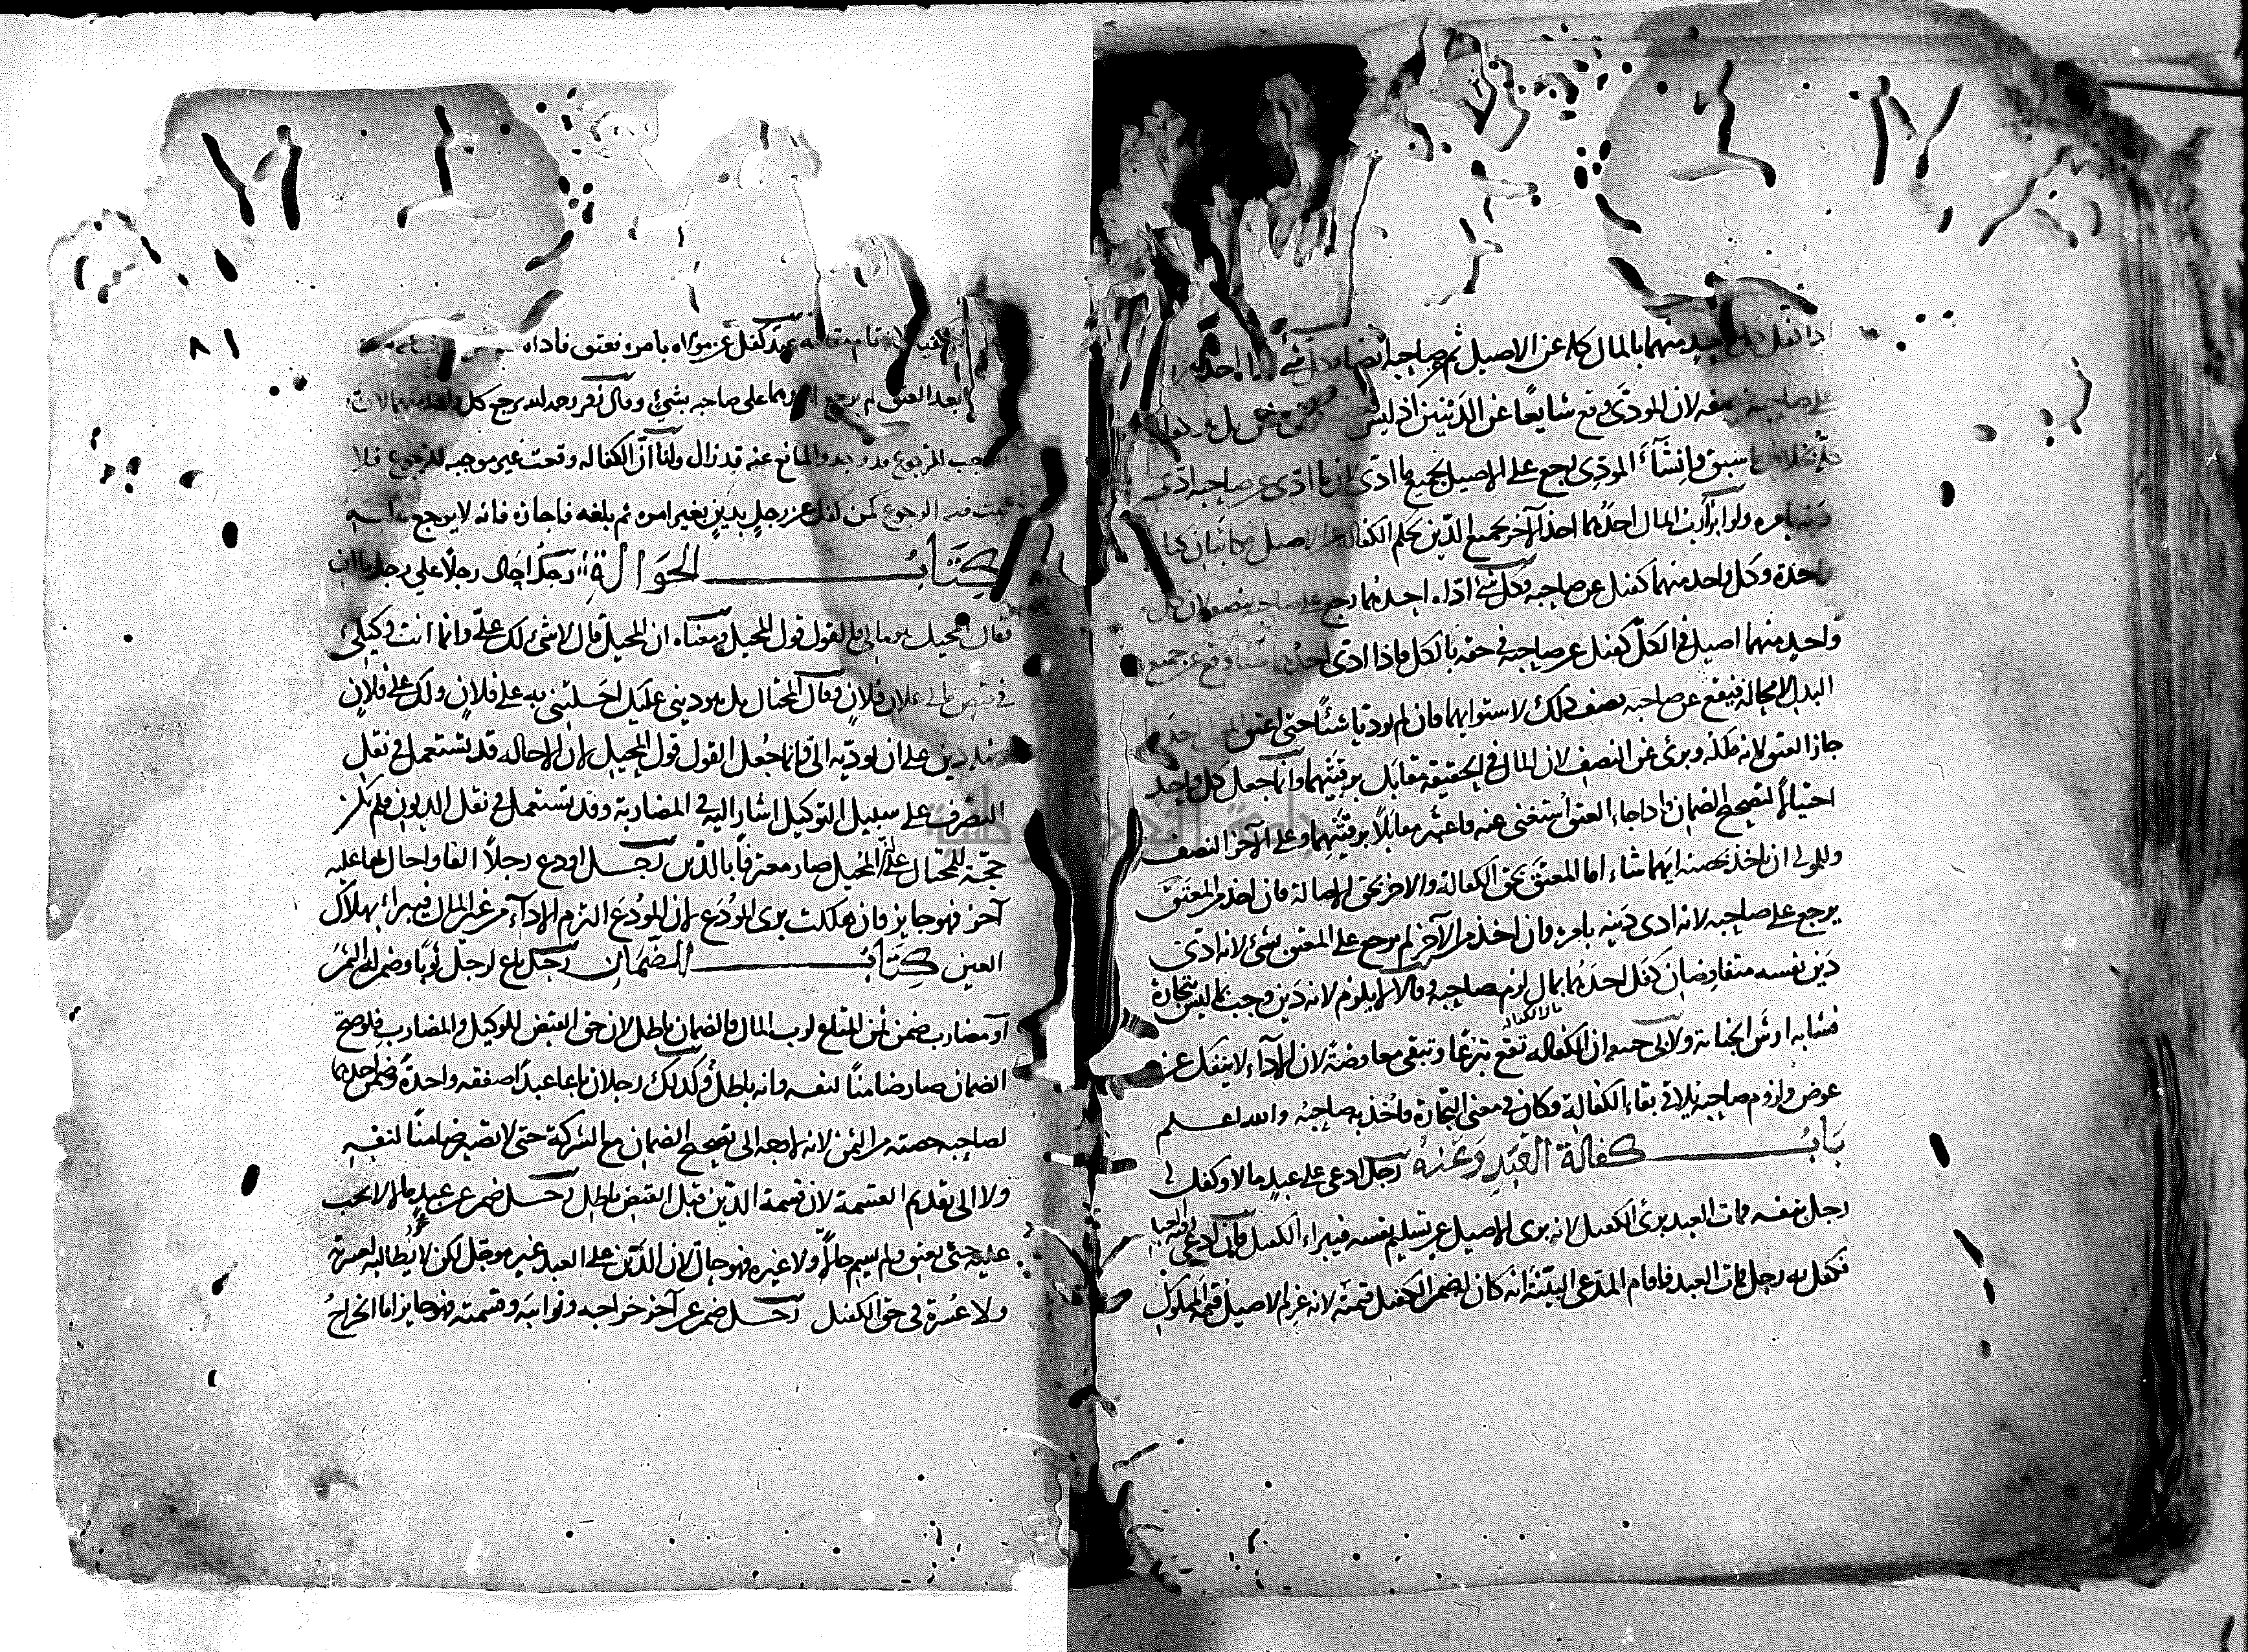 منهما بالمال كله عن الاصيل ثم عن صاحبه ايضا وكل شئ
على صاحبه بنصفه لان المودّى وقع شايعًا عن الدَينين اذ ليس
سبق وإن شآء المودّى رجع على الاصيل بجميع ما ادّى لان ما ادّى عن صاحبه ادّى
دَينه بامره ولو ابرأ رب المال احدَهما اخذ الآخر بجميع الدّين بحكم الكفالة عن الاصيل مكاتبان كتابة
واحدة وكل واحد منهما كفيل عن صاحبه وكل شئ ادّاه احدهما رجع على صاحبه بنصفه لان كل
واحدٍ منهما اصيل في الكلّ كفيل عن صاحبه في حقه بالكل فاذا ادّى احدُهما شئا وقع عن جميع
البدل لا محالة فيقع عن صاحبه نصف ذلك لاستوايهما فان لم يوديا شئًا حتى اعتق المولى احدَهما
جاز العتق لانه ملكه وبرئ عن النصف لان المال في الحقيقة مقابَل برقبتهما وانما جعل كل واحد
احتيالًا لتصحيح الضمان واذا جاء العتق استغنى عنه فاعتبر مقابَلًا برقبتهما وعلى الآخر النصف
وللمولى ان ياخذ بحصته ايهما شاء اما المعتق بحق الكفالة والاخر بحق الاصالة فان اخذ من المعتَق
يرجع على صاحبه لانه ادى دَينه بامره وان اخذ من الآخر لم يرجع على المعتق بشئ لانه ادّى
دَين نفسه متفاوضان كفل احدُهما بمال لزم صاحبه وقالا لا يلزم لانه دَين وجب بما ليس بتجارة
فشابه ارش الجناية ولابى حنيفة ان الكفالة تقع تبرّعًا وتبقى معاوضةً لان الاداء لا ينفك عن
عوض ولزوم صاحبه يلاقى بقاء الكفالة وكان في معنى التجارة فاُخذ به صاحبُه والله اعلم
بَابُ كفالة العَبدِ وَعَنهُ رجل ادعى على عبدٍ مالا وكفل لى
رجل بنفسه فمات العبد برئ الكفيل لانه برى الاصيل عن تسليم نفسه فيبراء الكفيل فان ادعى رقبة العبد
فكفل به رجل فمات العبد فاقام المدّعى البيّنة انه كان له ضمن الكفيل قيمته لانه غرم الاصيل قيمة المملوك
عبد كفل عن مولاه بامره فعتق فاداه
بعد العتق لم يرجع احدهما على صاحبه بشئ وقال زفر رحمه الله يرجع كل واحد منهما لان
الموجب للرجوع قد وجد والمانع عنه قد زال ولنا انّ الكفالة وقعت غير موجبه للرجوع فلا
الرجوع كمن كفل عن رجلٍ بدينٍ بغير امره ثم بلغه فاجازه فانه لا يرجع عليه
كِتَابُ الحَوَالَةِ رجلٌ احال رجلًا على رجل بالف
فقال المحيل هو مالى فالقول قول المحيل ومعناه ان المحيل قال لا شئ لك علىّ وانما انت وكيلى
في قبض مالى على فلانٍ وقال المحتال بل هو دينى عليك احَلتَنى به على فلانٍ ولك على فلانٍ
مثله دين على ان يودّيه الىّ وانما جُعل القول قول المحيل لان الاحالة قد تستعمل في نقل
التصرف على سبيل التوكيل اشار اليه في المضاربة وقد تستعمل في نقل الديون فلم يكن
حجّة للمحتال على المحيل صار معترفًا بالدّين رجل اودع رجلاً الفا واحال بها عليه
آخر فهو جايز فان هلكت برى المُودَع لان المُودَع التزم الاداء من غير المال فيبراء بهلاك
العين كتابُ الضمَان رجل باع لرجل ثوبًا وضمن له الثمن
او مضارب ضمن ثمن المتاع لرب المال فالضمان باطل لان حق القبض للوكيل والمضارب فلو صحّ
الضمان صار ضامنًا لنفسه وانه باطل وكذلك رجلان باعا عبدًا صفقه واحدة وضمن احدهما
لصاحبه حصته من الثمن لانه لا وجه الى تصحيح الضمان مع الشركة حتى لا يصير ضامنًا لنفسه
ولا الى تقديم القسمة لان قسمة الدّين قبل القبض باطل رجل ضمن عن عبدٍ مالا لا يجب
عليه حتى يعتق ولم يسم حالًّا ولا غيره فهو حال لان الدّين على العبد غير موجّل لكن لا يُطالب لعسرته
ولا عُسرة في حق الكفيل رجل ضمن عن آخر خراجه ونوائبه وقسمته فهو جايز اما الخراج